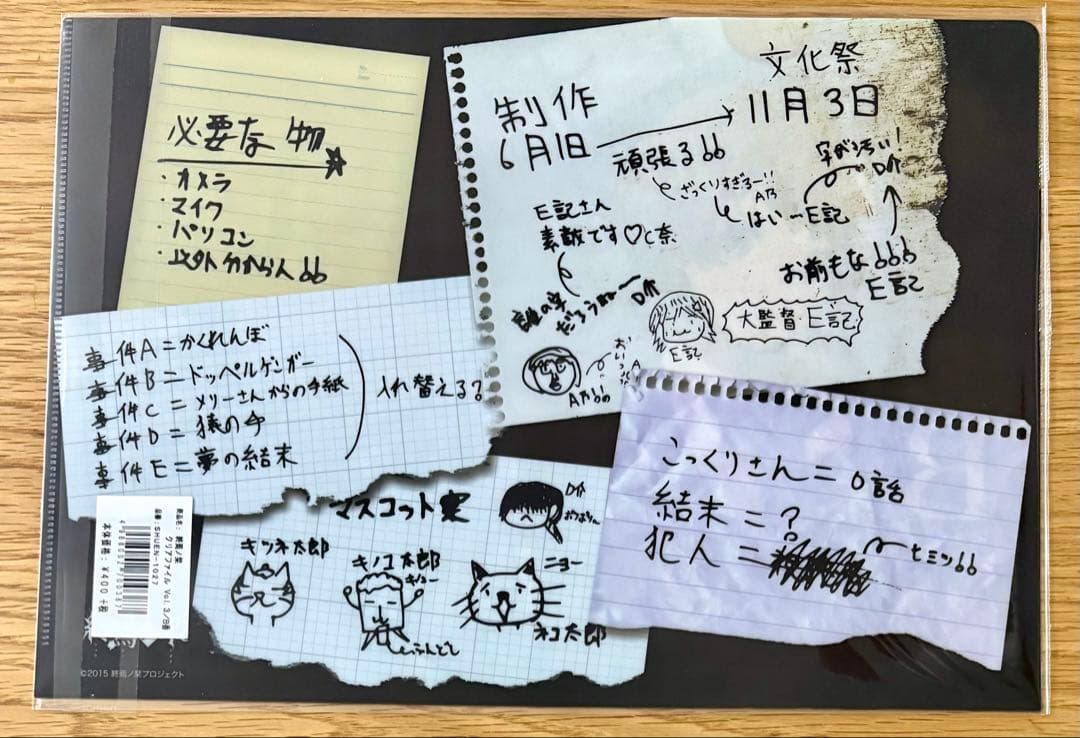 必要な物
・カメラ
・マイク
・パソコン
・以外分からんоо
制作
6月1日
文化祭
11月3日
頑張るоо
ざっくりすぎるー!!
A乃
はい…E記
字が汚い!
D介
お前もなооо
E記
E記さん
素敵です♡C奈
誰の字
だろうね〜
D介
E記
大監督・E記
事件A=かくれんぼ
事件B=ドッペルゲンガー
事件C=メリーさんからの手紙
事件D=猿の手
事件E=夢の結末
入れ替える?
マスコット案
D介
キツネ太郎
キノコ太郎
ニョー
ネコ太郎
ふんどし
こっくりさん=0話
結末=?
犯人=
ヒミツоо
商品名:終焉ノ栞
クリアファイル Vol.3/B番
品番:SHUEN-1027
本体価格:¥400+税
©2015 終焉ノ栞プロジェクト